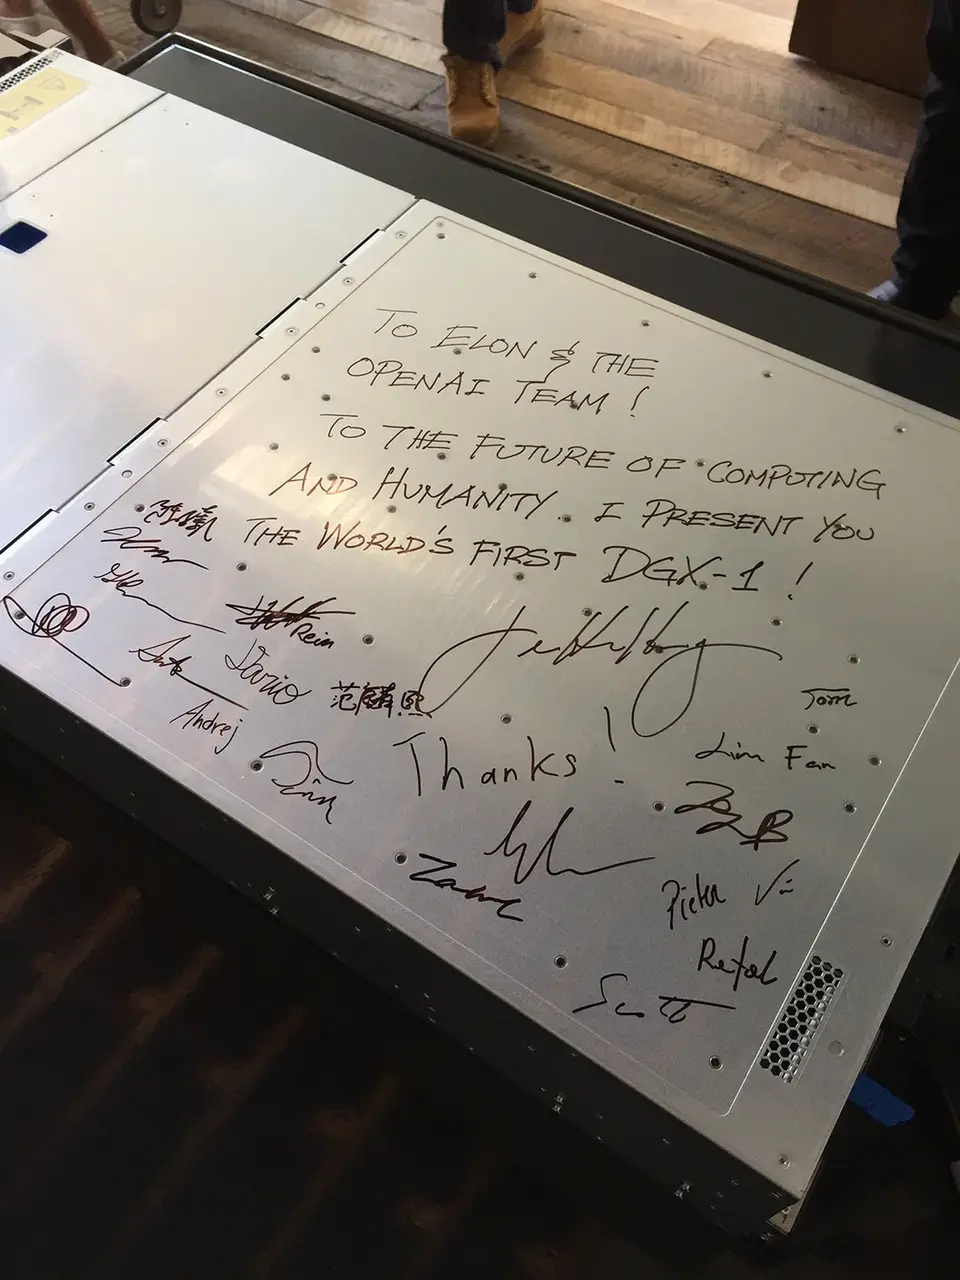 TO ELON & THE
OPENAI TEAM!
TO THE FUTURE OF COMPUTING
AND HUMANITY. I PRESENT YOU
THE WORLD'S FIRST DGX-1!
Rein
Dario
范麟熙
Andrej
Tom
Thanks!
Jim Fan
Pieter
Rafal
Scott